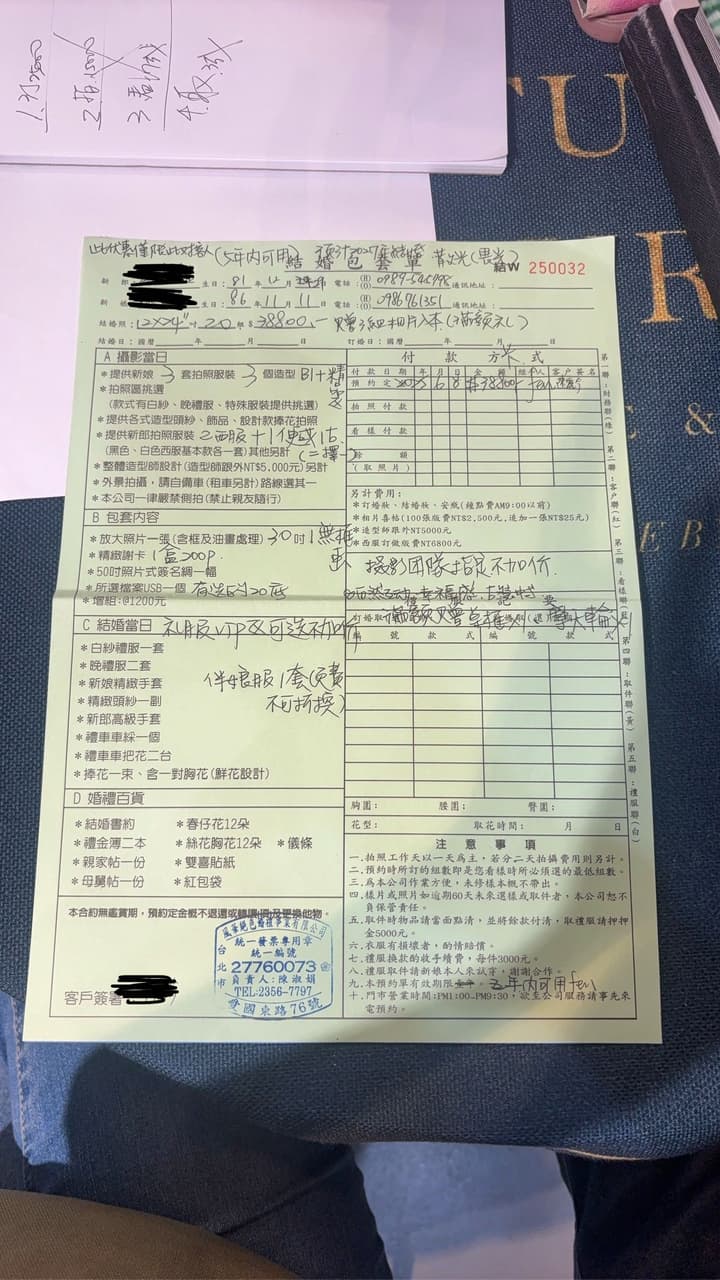 1.訂25000
2.拍15000
3.看
4.取
TU
R
&
EB
此優惠僅限此對新人(5年內可用) 預計2027年結婚
結婚包套單
結W 250032
新郎 生日:81年12月 日 電話:(H) (O) 0989-546998 通訊地址:
新娘 生日:86年11月11日 電話:(H) (O) 0986761351 通訊地址:
結婚照:12X24"吋 20組$38800.- 贈3組相片入本(滿額禮)
結婚日:國曆 年 月 日 訂婚日:國曆 年 月 日
A 攝影當日
*提供新娘3套拍照服裝 3個造型 B1+精
*拍照區挑選
(款式有白紗、晚禮服、特殊服裝提供挑選)
*提供各式造型頭紗、飾品、設計款捧花拍照
*提供新郎拍照服裝 2西服+1便
(黑色、白色西服基本款各一套)其他另計 (二擇一)
*整體造型師設計(造型師跟外NT$5,000元)另計
*外景拍攝,請自備車(租車另計)路線選其一
*本公司一律嚴禁側拍(禁止親友隨行)
B 包套內容
*放大照片一張(含框及油畫處理) 30吋1無框
*精緻謝卡 1盒200P
*50吋照片式簽名綢一幅
*所選檔案USB一個 有選的20
*增組:@1200元
C 結婚當日 禮服VIP&可選不加價
*白紗禮服一套
*晚禮服二套
*新娘精緻手套 伴娘服1套(免費
*精緻頭紗一副 不可折換)
*新郎高級手套
*禮車車綵一個
*禮車車把花二台
*捧花一束、含一對胸花(鮮花設計)
D 婚禮百貨
*結婚書約 *春仔花12朵
*禮金簿二本 *絲花胸花12朵 *儀條
*親家帖一份 *雙喜貼紙
*母舅帖一份 *紅包袋
本合約無鑑賞期,預約定金概不退還或轉讓借貸及更換他物。
風華絕色婚禮事業有限公司
統一發票專用章
統一編號
27760073
負責人:陳淑娟
TEL:2356-7797
台北市
愛國東路76號
客戶簽署
付款方式
付款日期 年 月 日 金額 經手人 客戶簽名
預約定 2025 6 8 $38800 fen
拍照付款
看樣付款
餘額
(取照片)
另計費用:
*訂婚妝、結婚妝、安瓶(鐘點費AM9:00以前)
*相片喜帖(100張版費NT$2,500元,追加一張NT$25元)
*造型師跟外NT5000元
*西服訂做版費NT6800元
攝影團隊指定不加價.
編號 款式 編號 款式
胸圍: 腰圍: 臀圍:
花型: 取花時間: 月 日
注意事項
一.拍照工作天以一天為主,若分二天拍攝費用則另計。
二.預約時所訂的組數即是您看樣時所必須選的最低組數。
三.為本公司作業方便,未修樣本概不帶出。
四.樣片或照片如逾期60天未來選樣或取件者,本公司恕不負保管責任。
五.取件時物品請當面點清,並將餘款付清,取禮服請押押金5000元。
六.衣服有損壞者,酌情賠償。
七.禮服換款的收手續費,每件3000元。
八.禮服取件請新娘本人來試穿,謝謝合作。
九.本預約單有效期限 五年內可用fen
十.門市營業時間:PM1:00~PM9:30,欲至公司服務請事先來電預約。
第一聯:財務聯(綠)
第二聯:客戶聯(紅)
第三聯:看樣聯(藍)
第四聯:取件聯(黃)
第五聯:禮服聯(白)